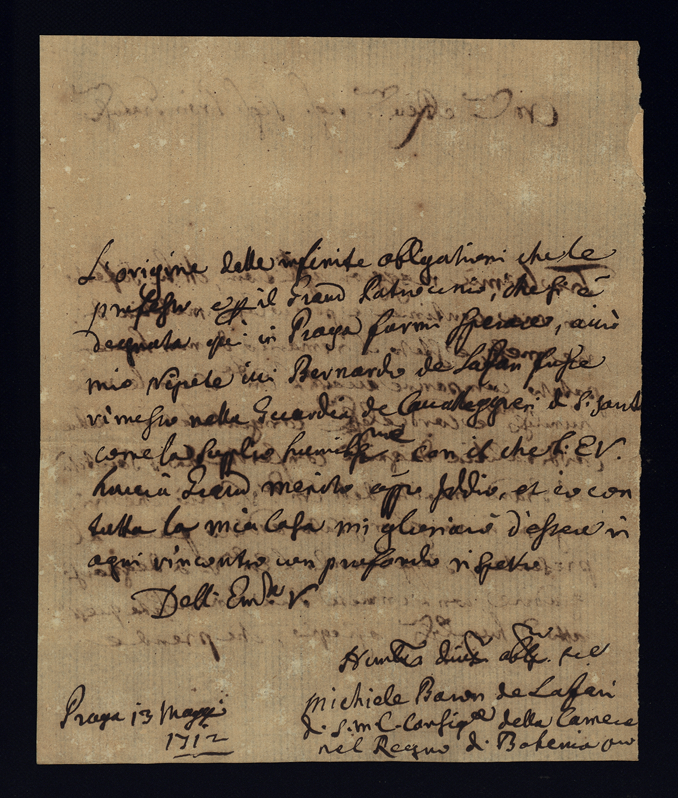 L'origine delle infinite obligationi che le
professo, è il Grand Patrocinio, che si è
degnata qui in Praga farmi sperare, acciò
mio nipote iui Bernardo de Lassari fusse
rimesso nella Guardia de Cavalleggieri di S. Sant
come la supplico humiliss.me con il che l'E.V.
haverà Grand merito app.o Iddio, et io con
tutta la mia Casa mi gloriarò d'essere in
ogni rincontro con profondo rispetto
Dell' Em.za V
Humiliss. diuotiss. obbl. se.e
Michiele Baron de Lassari
di S.M.C. Consig.re della Camera
nel Regno di Bohemia
Praga 13 Maggio
1712